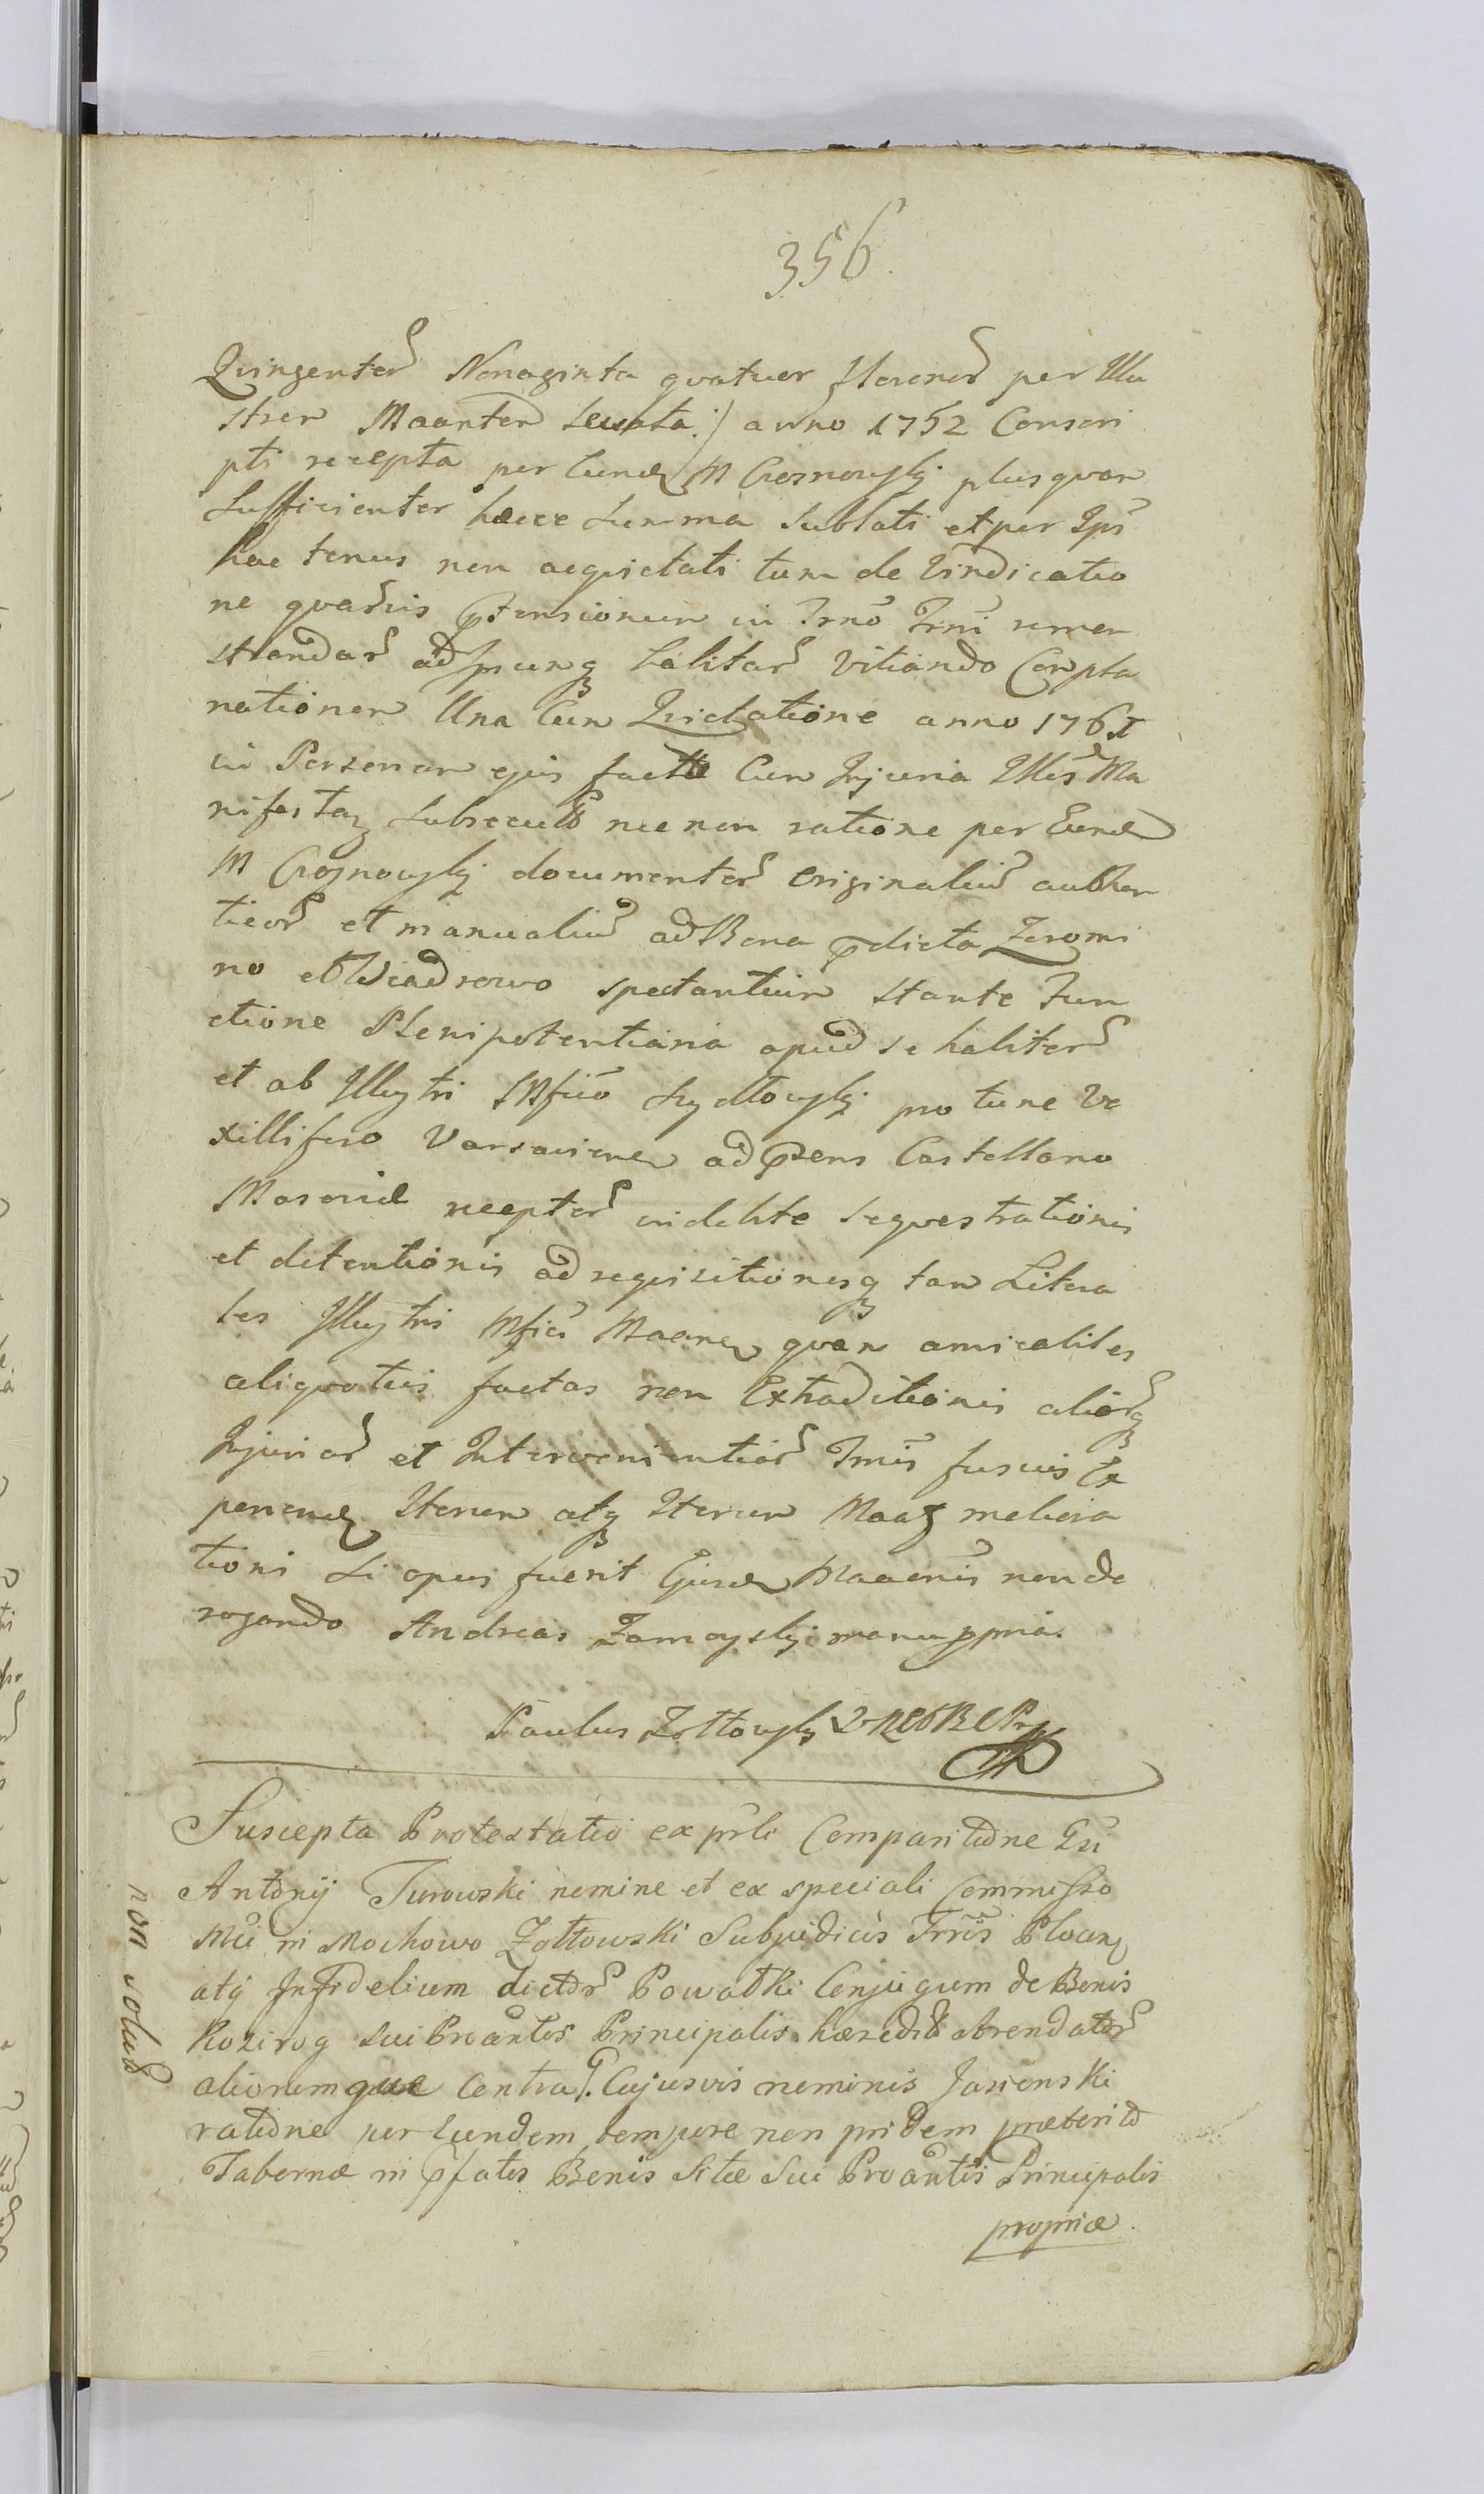 356.
Quingentor Nonaginta quatuor florenor per Illu
strem Maantem levata:/ anno 1752 Conscri
pti recepta per eund M Crosnowski plusquam
sufficienter haece summa sublati et per Ips
hactenus non aequietati tum de Vindicatio
ne quarvis ptensionum in Trno Trni remon
strandar adhucq habitar vitiando Complā
nationem Una Cum Quietatione anno 1761
in Personam ejus facta Cum Injuria Illris Ma
nifestaq subsecuta nec non ratione per Eund
M Crosnowski documentor originaliu authen
ticor et manualiu ad Bona pdicta Zeromi
no et Wiadrowo spectantium stante Fun
ctione Plenipotentiaria apud se habitor
et ab Illustri Mfico Szydłowski pro tunc Ve
xillifero Varsavien adpsens Castellano
Masoviae receptor indebite sequestrationis
et detentionis ad requisitionesq tam Litera
les Illustris Mfici Maanz quam amicabiles
aliquoties factas non Extraditionis aliorq
Injuriar et Intervenientior Trmis fusius Ex
ponend Iterum atq Iterum Maaz meliora
tioni si opus fuerit Ejusd Maaenis non de
rogando Andreas Zamoyski manu ppria.
Paulus Zołtowski
Suscepta Protestatio ex psli Comparitione Gsi
Antonij Turowski nomine et ex speciali Commisso
Mci in Mochowo Zołtowski Subjudicis Trris Plocen
atq Infidelium dictor Powałki Conjugum de Bonis
Kozirog sui Proantis Principalis haeredit Arendator
aliorumque Contra G. Cujusvis nominis Jasienski
ratione per eundem tempore non pridem praeterito
Tabernae in pfatis Bonis sitae sui Proantis Principalis
propriae.
non solut